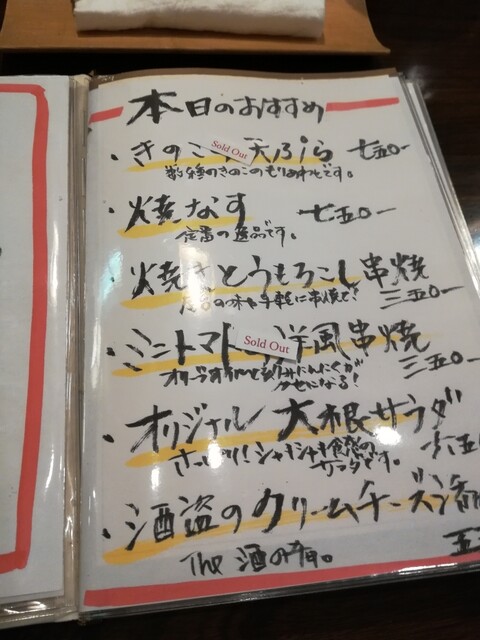 本日のおすすめ
・きのこ 天ぷら 七五〇ー
Sold Out
数種のきのこのもりあわせです。
・焼なす 七五〇ー
定番の逸品です。
・焼きとうもろこし串焼
屋台の味を手軽に串焼で! 三五〇ー
・ミニトマト 洋風串焼
Sold Out
三五〇ー
クセになる!
・オリジナル大根サラダ
さっぱり!シャキシャキ食感の 六五
サラダです。
・酒盗のクリームチーズ添
The 酒の肴。 五